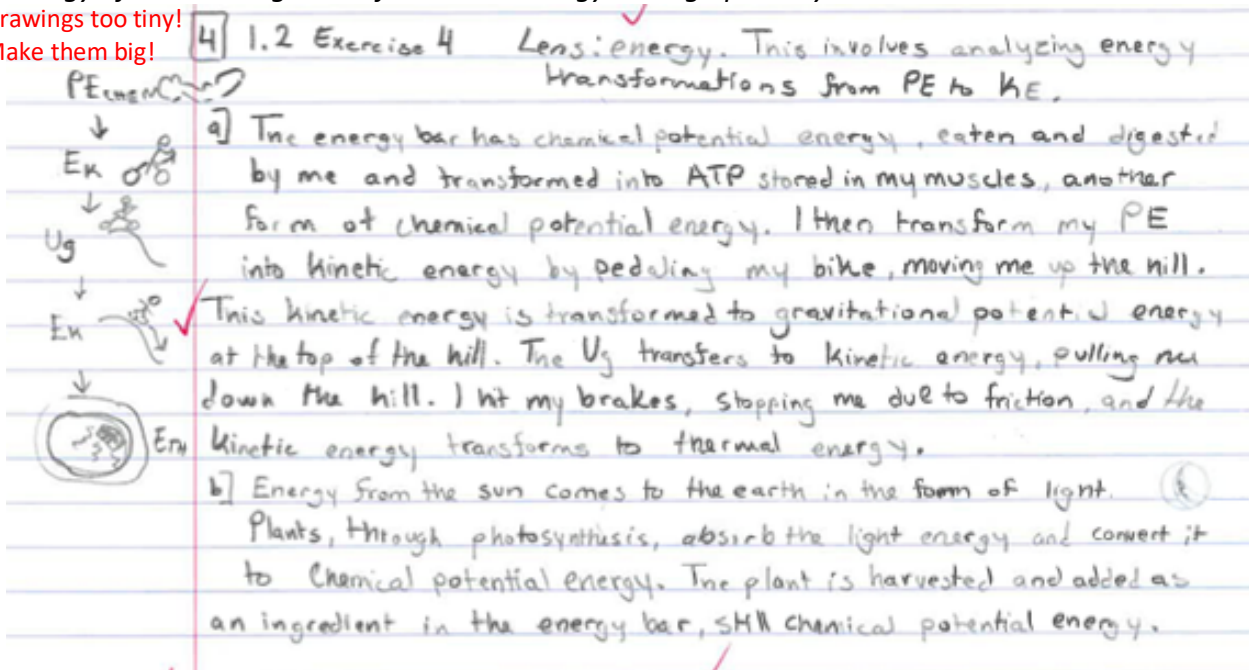 rawings too tiny!
Make them big!
4 1.2 Exercise 4 Lens: energy. This involves analyzing energy
transformations from PE to KE.
PEchem
a] The energy bar has chemical potential energy, eaten and digested
EK by me and transformed into ATP stored in my muscles, another
form of chemical potential energy. I then transform my PE
Ug
into kinetic energy by pedaling my bike, moving me up the hill.
EK This kinetic energy is transformed to gravitational potential energy
at the top of the hill. The Ug transfers to kinetic energy, pulling me
down the hill. I hit my brakes, stopping me due to friction, and the
ETH kinetic energy transforms to thermal energy.
b] Energy from the sun comes to the earth in the form of light.
Plants, through photosynthesis, absorb the light energy and convert it
to Chemical potential energy. The plant is harvested and added as
an ingredient in the energy bar, still chemical potential energy.